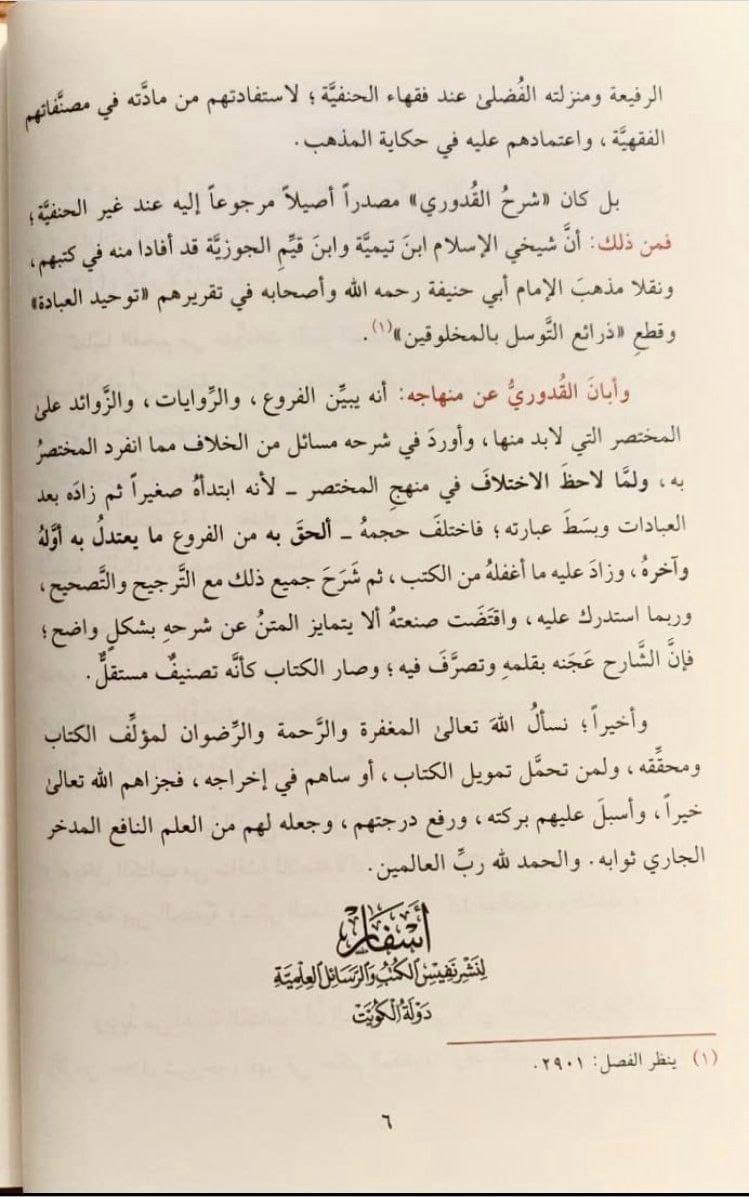 الرفيعة ومنزلته الفُضلىٰ عند فقهاء الحنفيَّة ؛ لاستفادتهم من مادَّته في مصنَّفاتهم
الفقهيَّة ، واعتمادهم عليه في حكاية المذهب .
بل كان «شرحُ القُدوري» مصدراً أصيلاً مرجوعاً إليه عند غير الحنفيَّة ؛
فمن ذلك: أنَّ شيخي الإسلام ابنَ تيميَّة وابنَ قيِّمِ الجوزيَّة قد أفادا منه في كتبهم ،
ونقلا مذهبَ الإمام أبي حنيفة رحمه الله وأصحابه في تقريرهم «توحيد العبادة»
وقطعِ «ذرائع التَّوسل بالمخلوقين»(١) .
وأبانَ القُدوريُّ عن منهاجه: أنه يبيِّن الفروع ، والرِّوايات ، والزَّوائد علىٰ
المختصر التي لابد منها ، وأوردَ في شرحه مسائل من الخلاف مما انفرد المختصرُ
به ، ولمَّا لاحظَ الاختلافَ في منهجِ المختصر ـ لأنه ابتدأهُ صغيراً ثم زادَه بعد
العبادات وبسَطَ عبارته ؛ فاختلفَ حجمهُ ـ ألحقَ به من الفروع ما يعتدلُ به أوَّلهُ
وآخرهُ ، وزادَ عليه ما أغفلهُ من الكتب ، ثم شَرَحَ جميع ذلك مع التَّرجيح والتَّصحيح ،
وربما استدرك عليه ، واقتَضَت صنعتهُ ألا يتمايز المتنُ عن شرحهِ بشكلٍ واضح ؛
فإنَّ الشَّارح عَجَنه بقلمهِ وتصرَّفَ فيه ؛ وصار الكتاب كأنَّه تصنيفٌ مستقلٌّ .
وأخيراً ؛ نسألُ اللهَ تعالىٰ المغفرة والرَّحمة والرِّضوان لمؤلِّف الكتاب
ومحقِّقه ، ولمن تحمَّل تمويل الكتاب ، أو ساهم في إخراجه ، فجزاهم الله تعالىٰ
خيراً ، وأسبلَ عليهم بركته ، ورفع درجتهم ، وجعله لهم من العلم النافع المدخر
الجاري ثوابه . والحمد لله ربِّ العالمين .
أسفار
لِنَشْرِ نَفِيسِ الكُتُبِ وَالرَّسَائِلِ العِلْمِيَّةِ
دَوْلَةُ الكُوَيْتْ
(١) ينظر الفصل: ٢٩٠١ .
٦